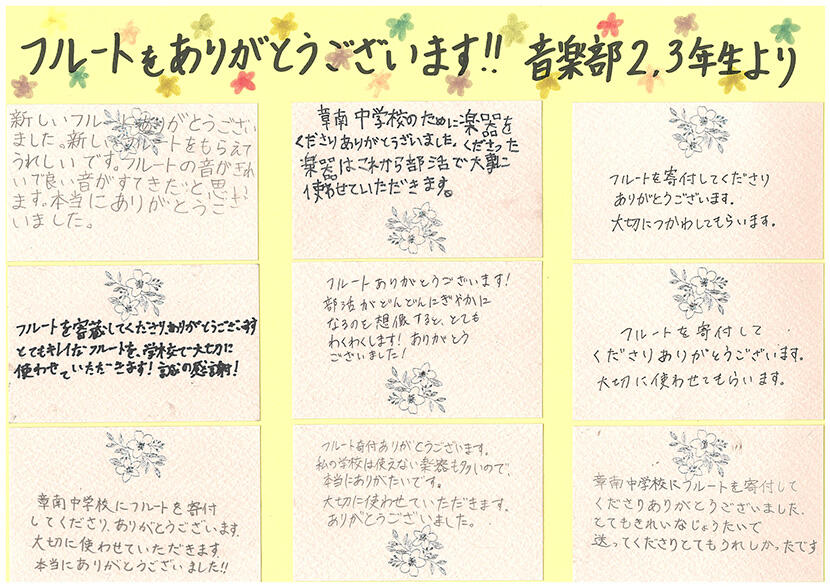 フルートをありがとうございます!! 音楽部2,3年生より
新しいフルートありがとうござい
ました。新しいフルートをもらえて
うれしいです。フルートの音がきれ
いで良い音がすてきだと思い
ます。本当にありがとうござ
いました。
章南中学校のために楽器を
くださりありがとうございました。くださった
楽器はこれから部活で大事に
使わせていただきます。
フルートを寄付してくださり
ありがとうございます。
大切につかわしてもらいます。
フルートを寄蔵してくださり、ありがとうございます
とてもキレイなフルートを、学校で大切に
使わせていただきます!誠の感謝!
フルートありがとうございます!
部活がどんどんにぎやかに
なるのを想像すると、とても
わくわくします!ありがとう
ございました!
フルートを寄付して
くださりありがとうございます。
大切に使わせてもらいます。
章南中学校にフルートを寄付
してくださり、ありがとうございます。
大切に使わせていただきます。
本当にありがとうございました!!
フルート寄付ありがとうございます。
私の学校は使えない楽器も多いので、
本当にありがたいです。
大切に使わせていただきます。
ありがとうございました。
章南中学校にフルートを寄付して
くださりありがとうございました。
とてもきれいなじょうたいで
送ってくださりとてもうれしかったです